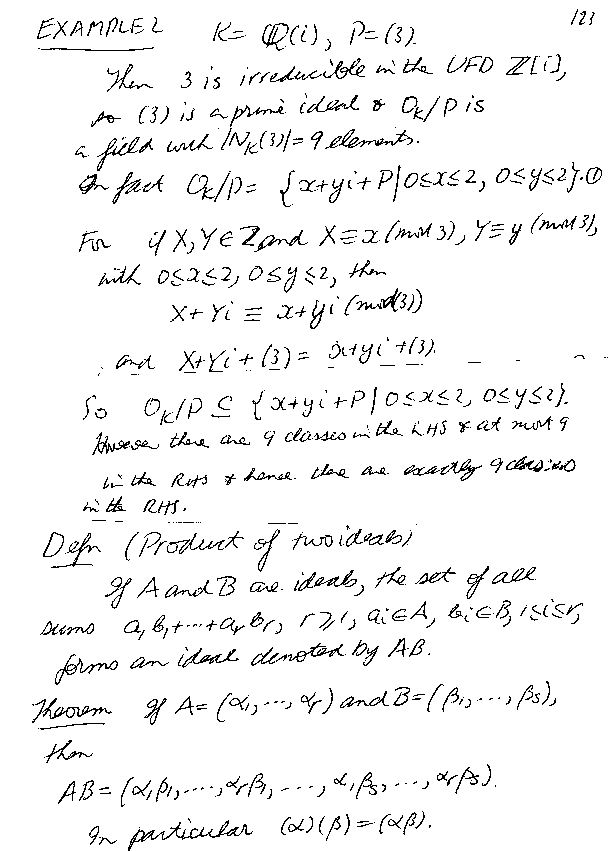 123
EXAMPLE 2 K = ℚ(i), P = (3).
Then 3 is irreducible in the UFD ℤ[i],
so (3) is a prime ideal & O_K/P is
a field with |N_K(3)| = 9 elements.
In fact O_K/P = {x+yi+P | 0≤x≤2, 0≤y≤2}. ①
For if X, Y ∈ ℤ and X ≡ x (mod 3), Y ≡ y (mod 3),
with 0≤x≤2, 0≤y≤2, then
X + Yi ≡ x + yi (mod(3))
and X+Yi + (3) = x+yi + (3).
So O_K/P ⊆ {x+yi+P | 0≤x≤2, 0≤y≤2}.
However there are 9 classes in the LHS & at most 9
in the RHS & hence there are exactly 9 classes
in the RHS.
Defn (Product of two ideals)
If A and B are ideals, the set of all
sums a₁b₁+⋯+aᵣbᵣ, r ≥ 1, aᵢ∈A, bᵢ∈B, 1≤i≤r,
forms an ideal denoted by AB.
Theorem If A = (α₁, ..., αᵣ) and B = (β₁, ..., βₛ),
then
AB = (α₁β₁, ..., αᵣβ₁, ..., α₁βₛ, ..., αᵣβₛ).
In particular (α)(β) = (αβ).